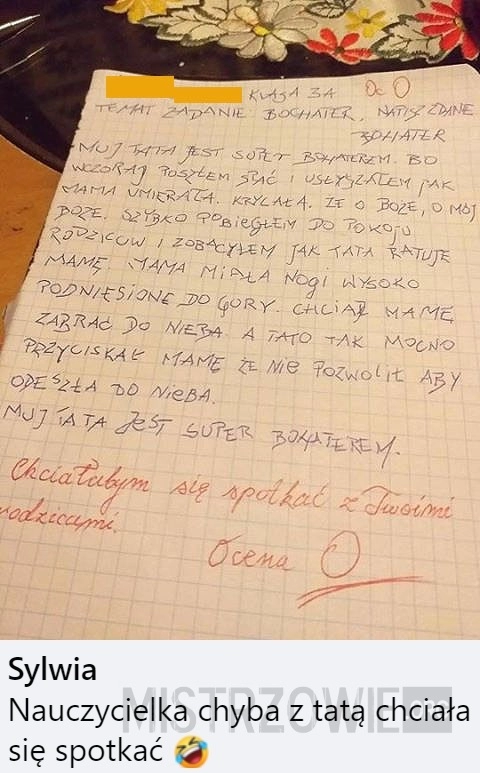 KLASA 3A Oc O
TEMAT ZADANIE: BOCHATER, NATISZ ZDANE
BOHATER
MUJ TATA JEST SUPET BOHATEREM. BO
WCZORAJ POSZŁEM SPAĆ I USŁYSZAŁEM JAK
MAMA UMIERAŁA. KRYLAŁA. ŻE O BOŻE, O MÓJ
BOŻE. SZYBKO POBIEGŁEM DO POKOJU
RODZICUW I ZOBACYŁEM JAK TATA RATUJE
MAMĘ. MAMA MIAŁA NOGI WYSOKO
PODNIESIONE DO GÓRY. CHCIAŁ MAMĘ
ZABRAĆ DO NIEBA. A TATO TAK MOCNO
PRZYCISKAŁ MAMĘ ŻE NIE POZWOLIŁ ABY
ODESZŁA DO NIEBA.
MUJ TATA JEST SUPER BOHATEREM.
Chciałabym się spotkać z Twoimi
rodzicami.
Ocena O
Sylwia
MISTRZOWIE.ORG
Nauczycielka chyba z tatą chciała
się spotkać 🤣